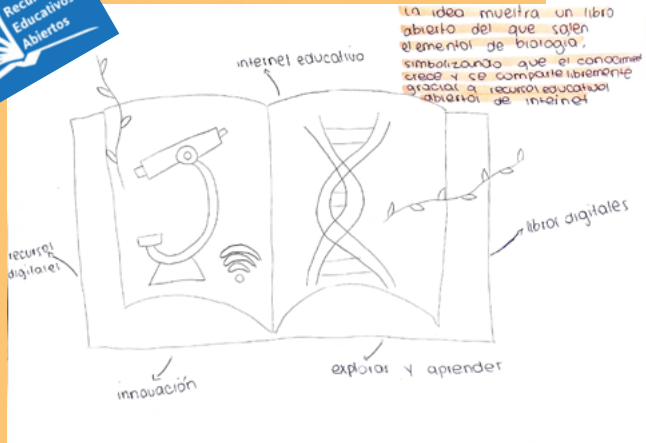 Recursos
Educativos
Abiertos
La idea muestra un libro
abierto del que salen
elementos de biología,
simbolizando que el conocimient
crece y se comparte libremente
gracias a recursos educativos
abiertos de internet
internet educativo
recursos
digitales
libros digitales
innovación
explorar y aprender